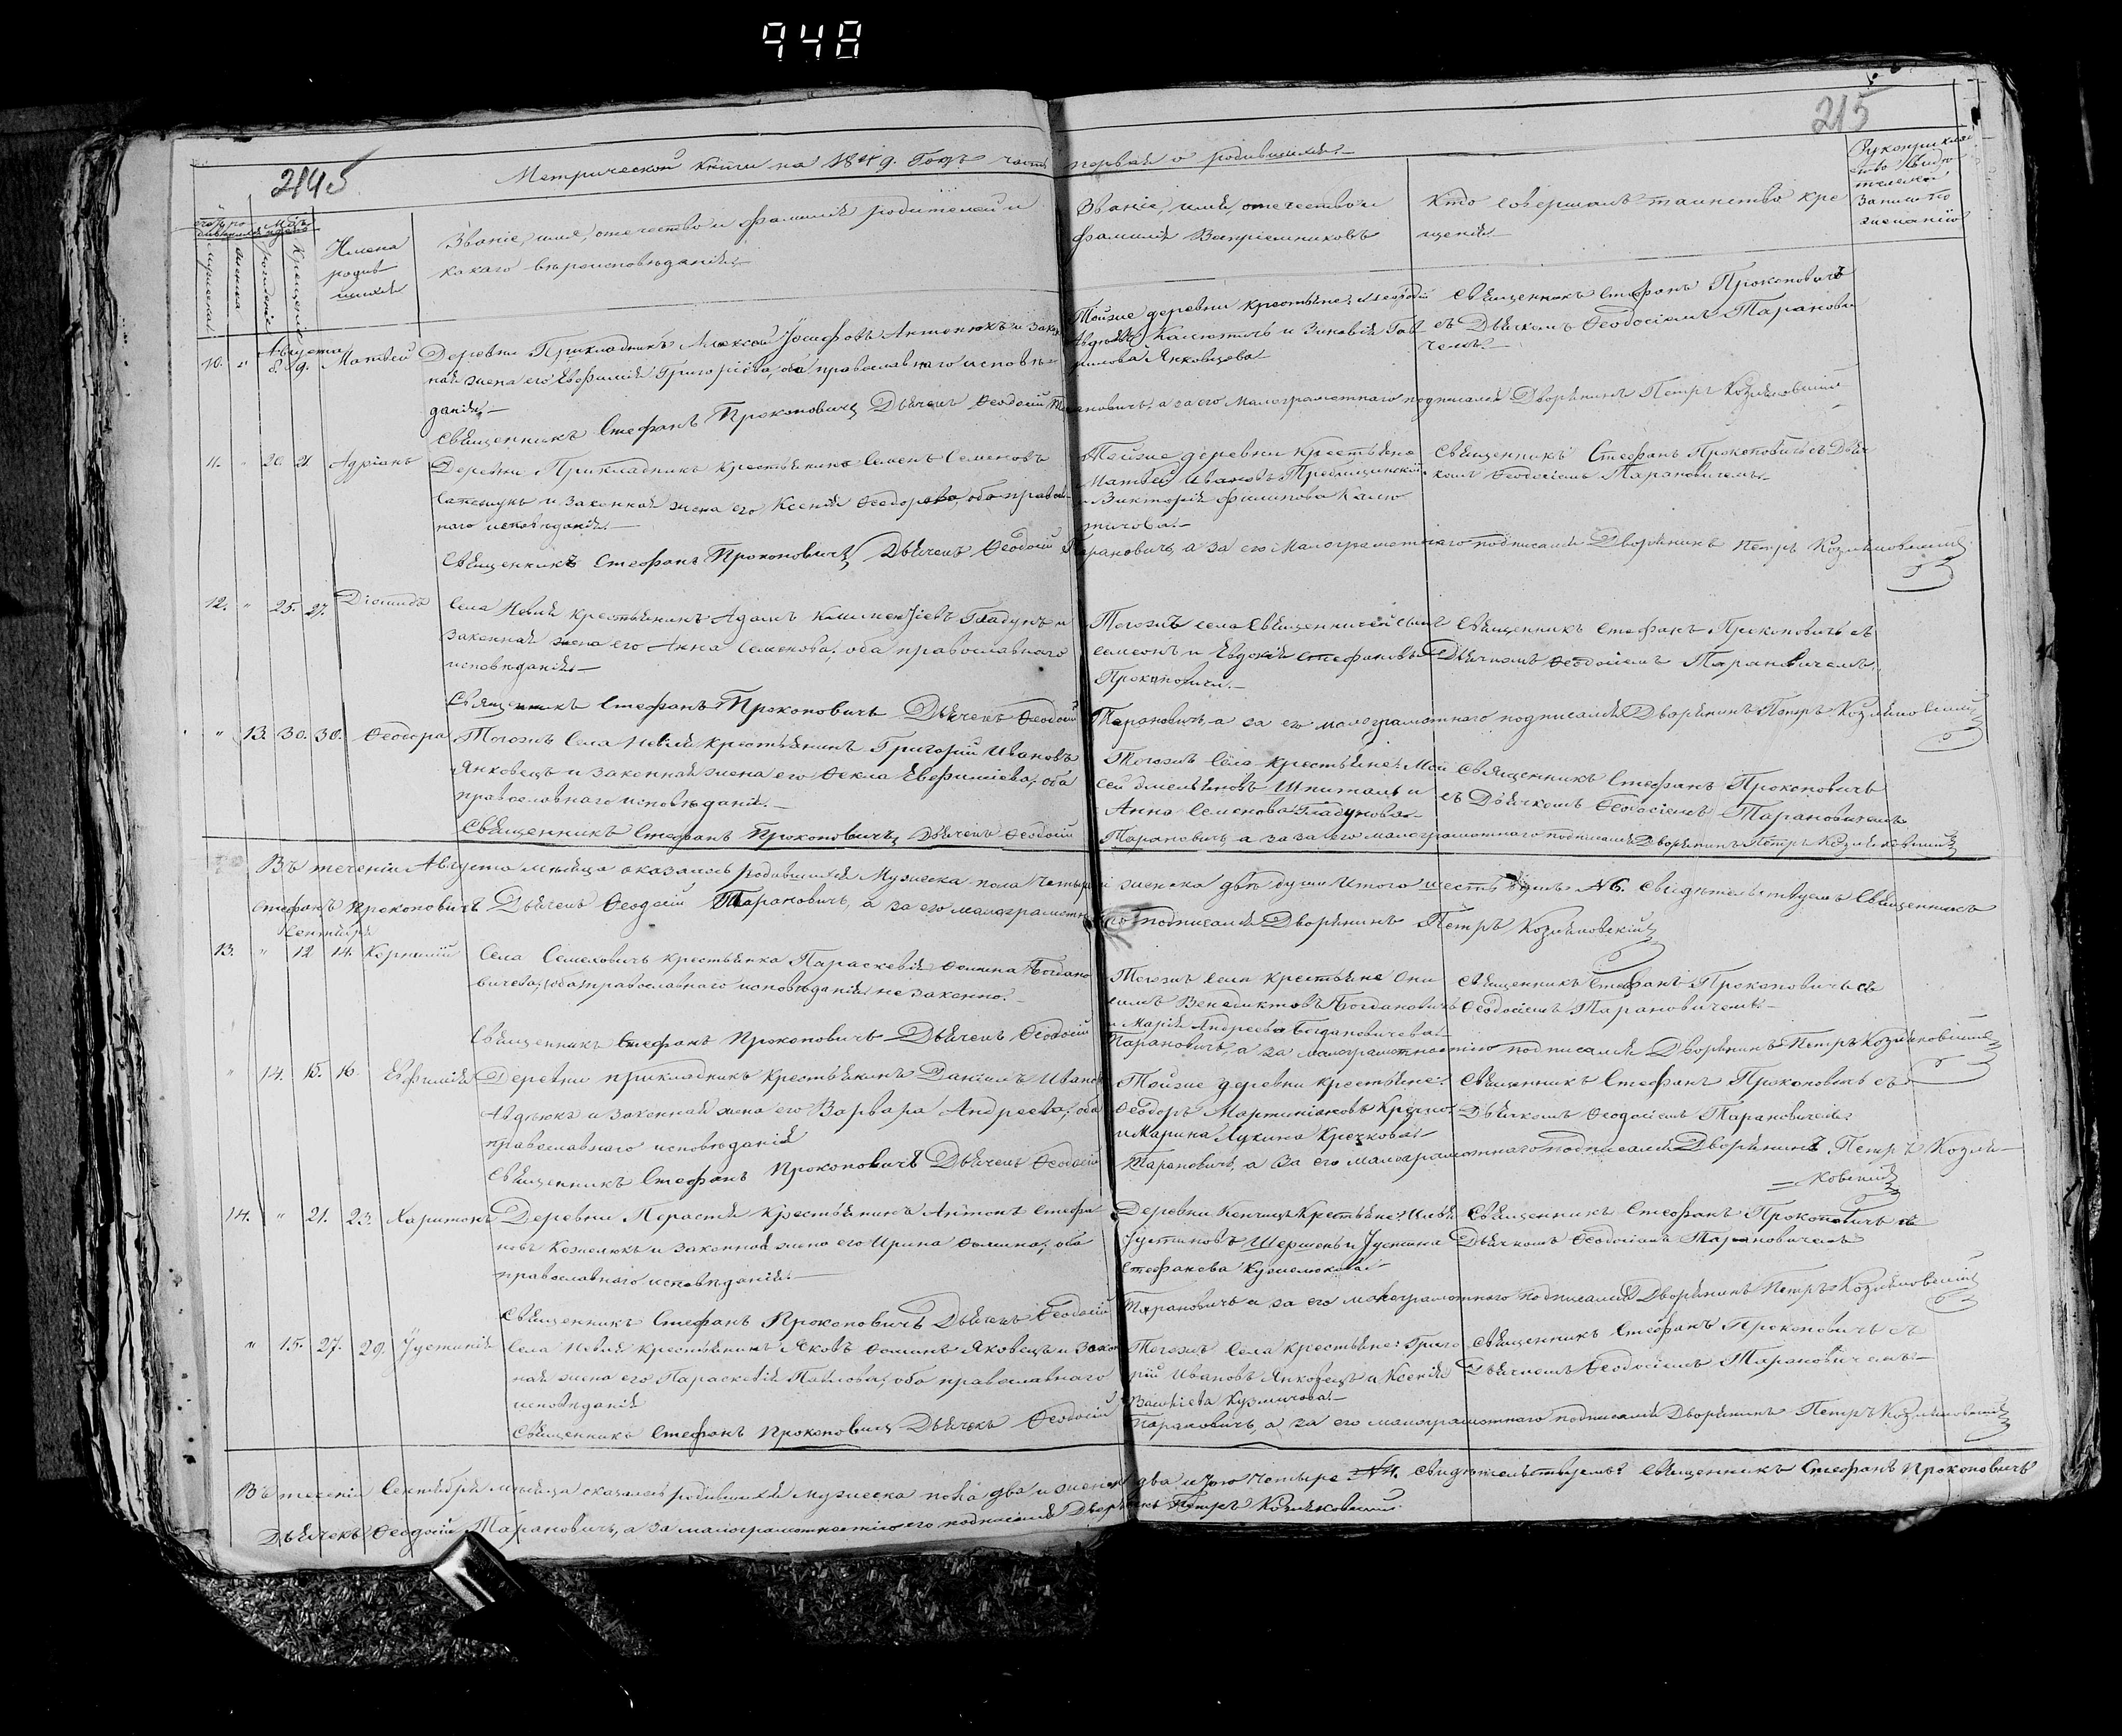 948
215
2145
Метрической книги на 1849. Годъ часть первая о родившихся.
Мѣсяцъ
мужеска
женска
рожденіе
Крещеніе
Имена родив
шихся
Званіе, имя, отечество и фамилія родителей и
какаго вѣроисповѣданія.
Званіе, имя, отечество и
фамилія Воспріемниковъ
Кто совершалъ таинство кре
щенія
Рукоприклад
ство свидѣ
телей
записи по
желанію
Августа
10. " 8 9. Матвей
Деревни Прикладникъ Алексѣй Іосифовъ Антонюкъ и закон
ная жена его Евфимія Григоріева, оба православнаго исповѣ
данія.
Тойже деревни крестьяне:
Калютичь и Зиновія Гав
рилова Янковцова
Священникъ Стефанъ Прокоповичъ
съ Дьячкомъ Ѳеодосіемъ Таранови
чемъ.
Священникъ Стефанъ Прокоповичъ Дьячекъ Ѳеодосій Тарановичъ, а за его малограмотнаго подписался Дворянинъ Петръ Козляковскій
11. " 20. 21. Адріанъ
Деревни Прикладникъ крестьянинъ Семенъ Семеновъ
и законная жена его Ксенія Ѳеодорова, оба православ
наго исповѣданія.
Тойже деревни крестьяне
Матвій Ивановъ
и Викторія Филипова Калю
тичова.
Священникъ Стефанъ Прокоповичъ съ Дьяч
комъ Ѳеодосіемъ Тарановичемъ.
Священникъ Стефанъ Прокоповичъ Дьячекъ Ѳеодосій Тарановичъ, а за его малограмотнаго подписался Дворянинъ Петръ Козляковскій
12. " 25. 27. Діомидъ
Села Невля крестьянинъ Адамъ Климентіевъ Гладунъ и
законная жена его Анна Семенова, оба православнаго
исповѣданія.
Тогожъ села Священничей сынъ
Семеонъ и Евдокія Стефановы
Прокоповичи.
Священникъ Стефанъ Прокоповичъ съ
Дьячкомъ Ѳеодосіемъ Тарановичемъ.
Священникъ Стефанъ Прокоповичъ Дьячекъ Ѳеодосій Тарановичъ а за его малограмотнаго подписался Дворянинъ Петръ Козляковскій
" 13. 30. 30. Ѳеодора
Тогожъ Села Невля крестьянинъ Григорій Ивановъ
Янковецъ и законная жена его Ѳекла Евфиміева, оба
православнаго исповѣданія.
Тогожъ Села крестьяне: Мой
сей Емельяновъ Шпиталь и
Анна Семенова Гладунова
Священникъ Стефанъ Прокоповичъ
съ Дьячкомъ Ѳеодосіемъ Тарановичемъ
Священникъ Стефанъ Прокоповичъ Дьячекъ Ѳеодосій Тарановичъ а за за его малограмотнаго подписался Дворянинъ Петръ Козляковскій
Въ теченіи Августа мѣсяца оказалось родившихся Мужеска пола четыре и женска двѣ души Итого шесть душъ №6. Свидѣтельствуемъ Священникъ
Стефанъ Прокоповичъ Дьячекъ Ѳеодосій Тарановичъ, а за его малограмотнаго подписался Дворянинъ Петръ Козляковскій
Сентября
13. " 12 14. Корнилій
Села Семеховичъ крестьянка Параскевія Ѳомина Богдано
вичева, оба православнаго исповѣданія, не законно.
Тогожъ Села крестьяне Они
симъ Венедиктовъ Богдановичъ
и Марія Андреева Богдановичева.
Священникъ Стефанъ Прокоповичъ съ
Ѳеодосіемъ Тарановичемъ.
Священникъ Стефанъ Прокоповичъ Дьячекъ Ѳеодосій Тарановичъ, а за малограмотностію подписался Дворянинъ Петръ Козляковскій
" 14. 15. 16. Евфимія
Деревни Прикладникъ крестьянинъ Даніилъ Ивановъ
Авдѣюкъ и законная жена его Варвара Андреева, оба
православнаго исповѣданія
Тойже деревни крестьяне:
Ѳеодоръ Мартиніановъ Кречко
и Марина Лукина Кречкова
Священникъ Стефанъ Прокоповичъ съ
Дьячкомъ Ѳеодосіемъ Тарановичемъ
Священникъ Стефанъ Прокоповичъ Дьячекъ Ѳеодосій Тарановичъ, а за его малограмотнаго подписался Дворянинъ Петръ Козля
ковскій
14. " 21. 23. Харитонъ
Деревни Мерастія крестьянинъ Антонъ Стефа
новъ Кожелюкъ и законная жена его Ирина Ѳомина, оба
православнаго исповѣданія.
Деревни Кончицъ Крестьяне: Илья
Іустиновъ Шершень и Іустина
Стефанова Кужелюкова
Священникъ Стефанъ Прокоповичъ съ
Дьячкомъ Ѳеодосіемъ Тарановичемъ
Священникъ Стефанъ Прокоповичъ Дьячекъ Ѳеодосій Тарановичъ а за его малограмотнаго подписался Дворянинъ Петръ Козляковскій
" 15. 27. 29. Іустинія
Села Невля крестьянинъ Яковъ Ѳоминъ Яковецъ и закон
ная жена его Параскевія Павлова, оба православнаго
исповѣданія
Тогожъ Села крестьяне: Григо
рій Ивановъ Янковецъ и Ксенія
Кузмичова.
Священникъ Стефанъ Прокоповичъ съ
Дьячкомъ Ѳеодосіемъ Тарановичемъ.
Священникъ Стефанъ Прокоповичъ Дьячекъ Ѳеодосій Тарановичъ, а за его малограмотнаго подписался Дворянинъ Петръ Козляковскій
Въ теченіи Сентября мѣсяца оказалось родившихся мужеска пола два и женска два итого четыре №4. Свидѣтельствуемъ: Священникъ Стефанъ Прокоповичъ
Дьячекъ Ѳеодосій Тарановичъ, а за малограмотностію его подписался Дворянинъ Петръ Козляковскій.